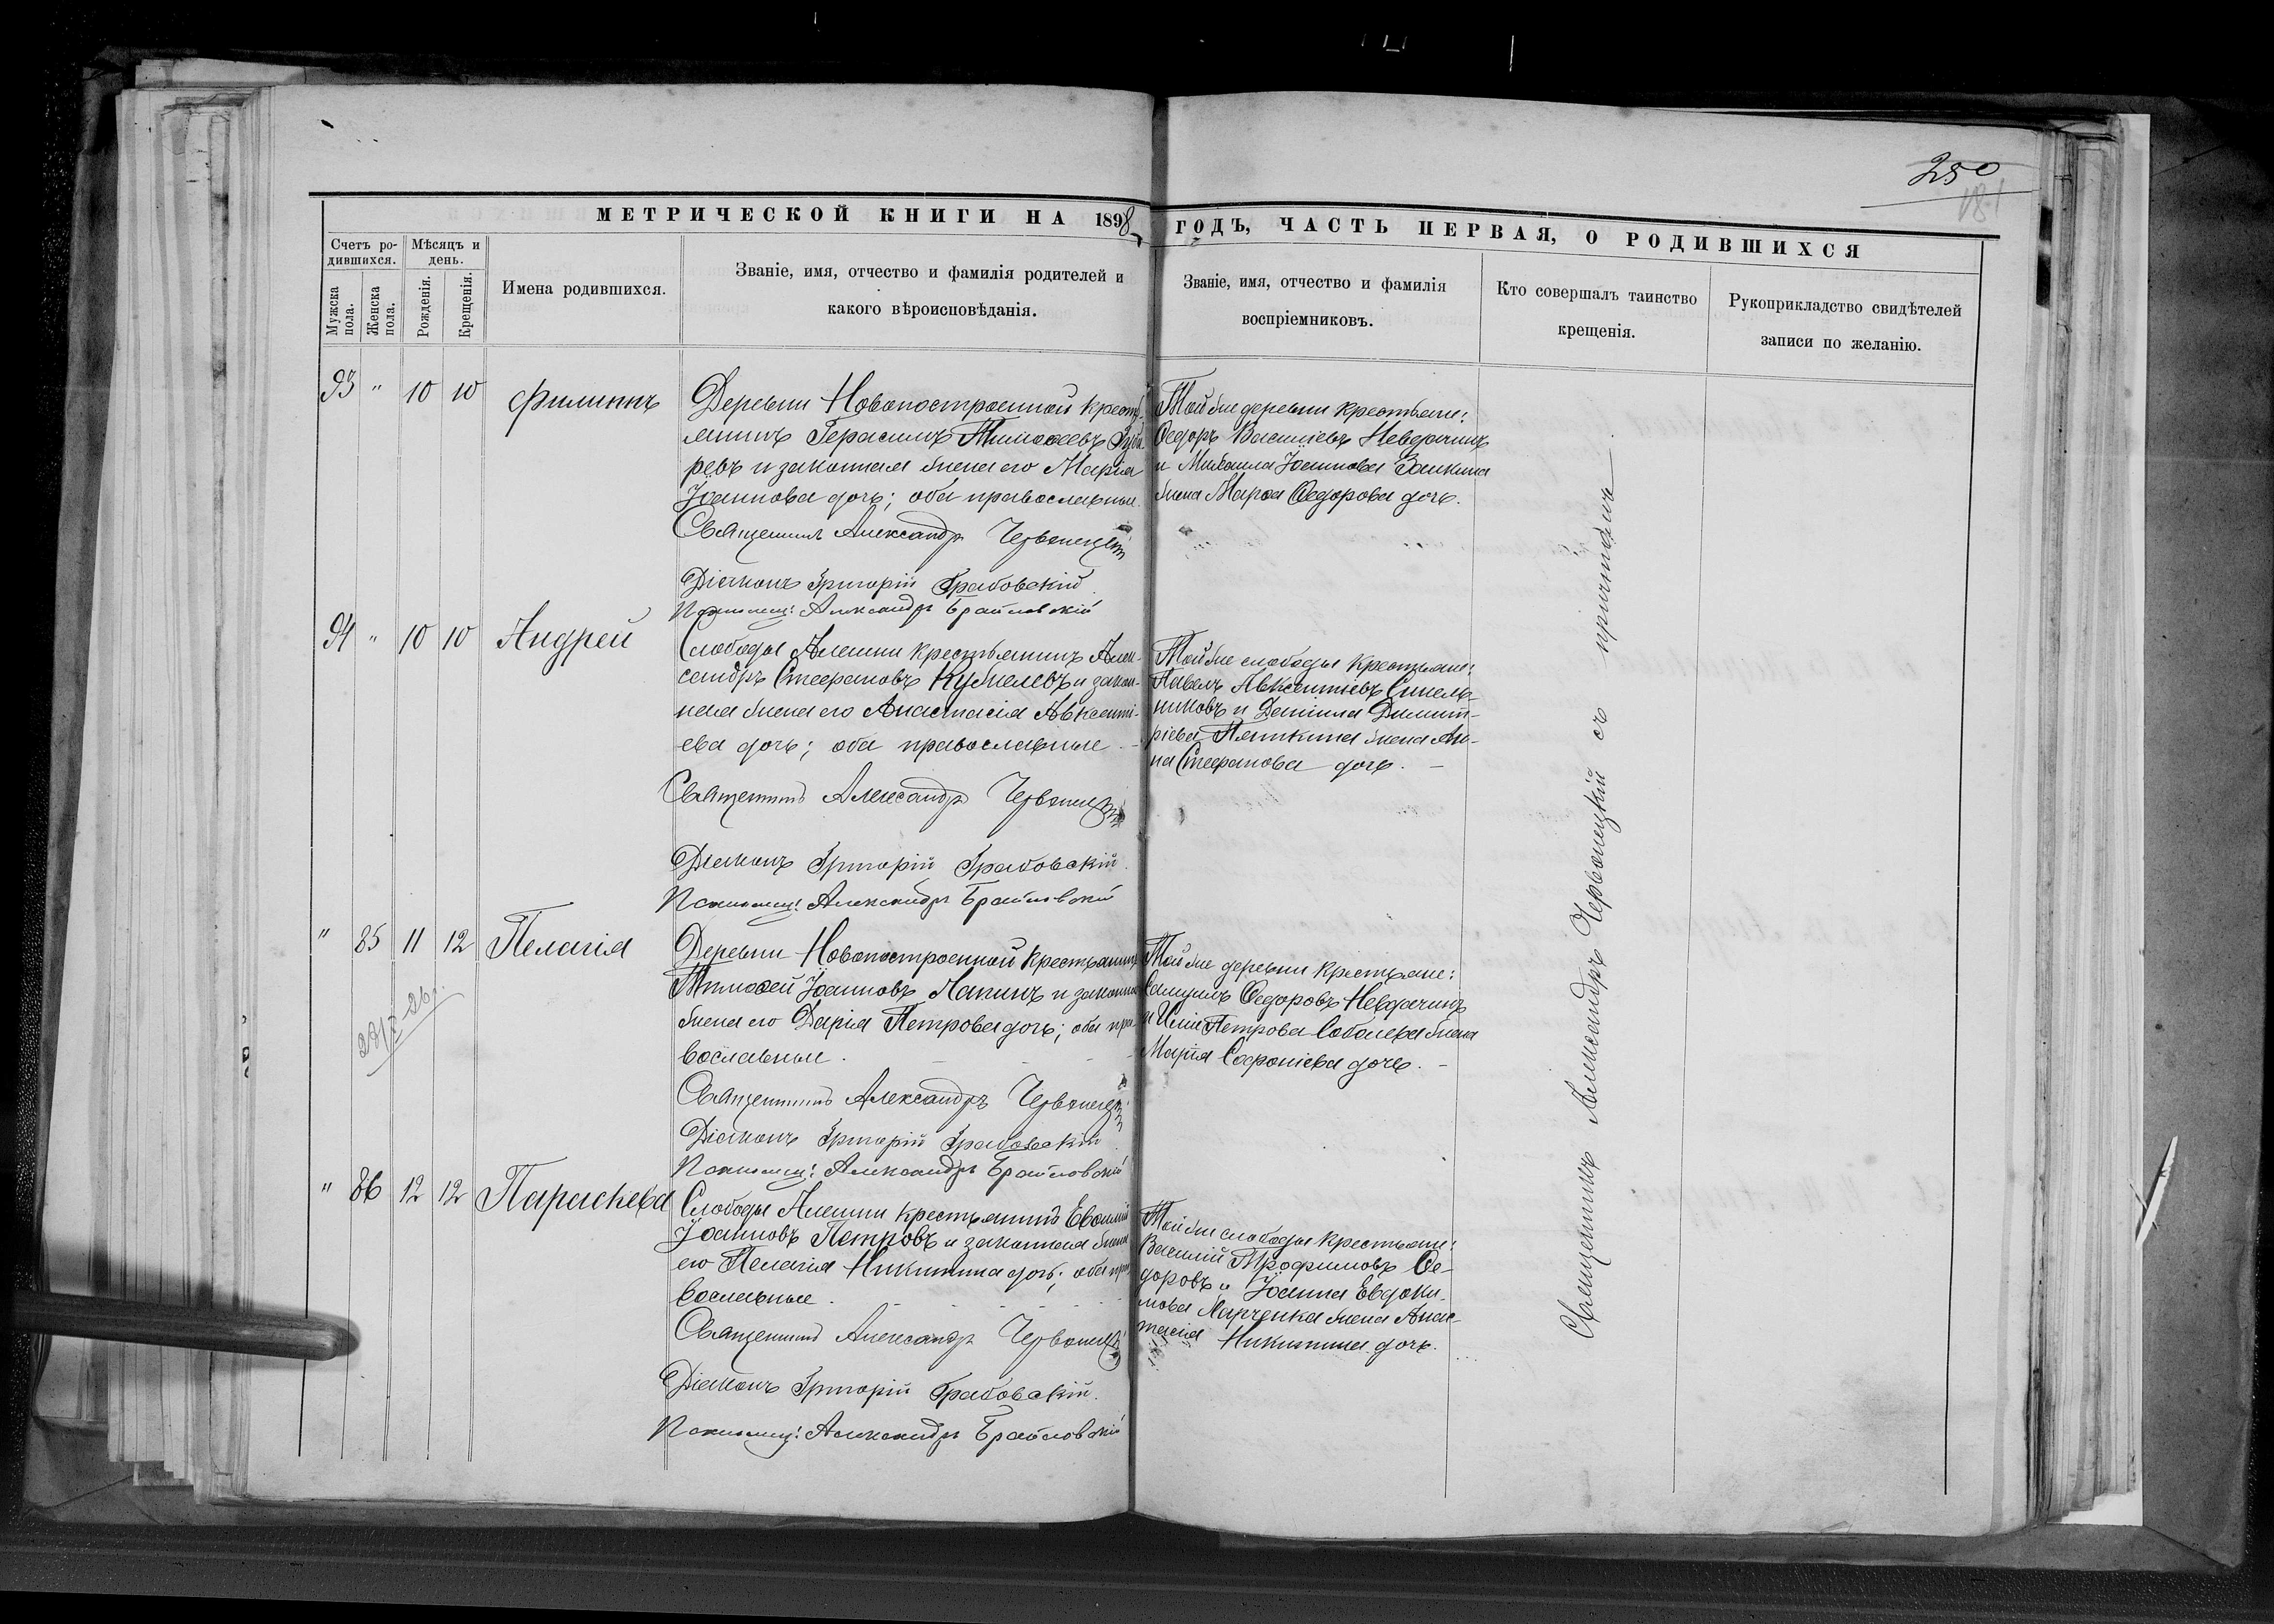 250
181
МЕТРИЧЕСКОЙ КНИГИ НА 1898 ГОДЪ, ЧАСТЬ ПЕРВАЯ, О РОДИВШИХСЯ
Счетъ ро-
дившихся.
Мѣсяцъ и
день.
Мужска
пола.
Женска
пола.
Рожденія.
Крещенія.
Имена родившихся.
Званіе, имя, отчество и фамилія родителей и
какого вѣроисповѣданія.
Званіе, имя, отчество и фамилія
воспріемниковъ.
Кто совершалъ таинство
крещенія.
Рукоприкладство свидѣтелей
записи по желанію.
93 " 10 10 Филиппъ
Деревни Новопостроенной крестья-
нинъ Герасимъ Тимоѳеевъ
ревъ и законная жена его Марія
Іоаннова дочь; оба православные.
Священникъ Александръ Червонецкій
Діаконъ Григорій Грабовскій
Псаломщ: Александръ Брайловскій
Той же деревни крестьяне:
Ѳедоръ Васильевъ Невдачинъ
и Михаила Іоаннова Заикина
жена Марѳа Ѳедорова дочь.
94 " 10 10 Андрей
Слободы Алешни крестьянинъ Алек-
сандръ Стефановъ и закон-
ная жена его Анастасія Авксенті-
ева дочь; оба православные.
Священникъ Александръ Червонецкій
Діаконъ Григорій Грабовскій.
Псаломщ: Александръ Брайловскій
Той же слободы крестьяне:
Павелъ Авксентіевъ Синель-
никовъ и Даніила Димит-
ріева жена Ан-
на Стефанова дочь.
" 85 11 12 Пелагія
Деревни Новопостроенной крестьянинъ
Тимоѳей Іоанновъ Лапинъ и законная
жена его Дарія Петрова дочь; оба пра-
вославные.
Священникъ Александръ Червонецкій
Діаконъ Григорій Грабовскій
Псаломщ: Александръ Брайловскій
Той же деревни крестьяне:
Самуилъ Ѳедоровъ Невдачинъ
и Иліи Петрова Соболева жена
Марія Софроніева дочь.
" 86 12 12 Параскева
Слободы Алешни крестьянинъ Евѳимій
Іоанновъ Петровъ и законная жена
его Пелагія Никитина дочь; оба пра-
вославные.
Священникъ Александръ Червонецкій
Діаконъ Григорій Грабовскій.
Псаломщ: Александръ Брайловскій
Той же слободы крестьяне:
Василій Трофимовъ Ѳе-
доровъ и Іоанна Евдоки-
мова Марченка жена Анас-
тасія Никитина дочь.
Священникъ Александръ Червонецкій съ причтомъ